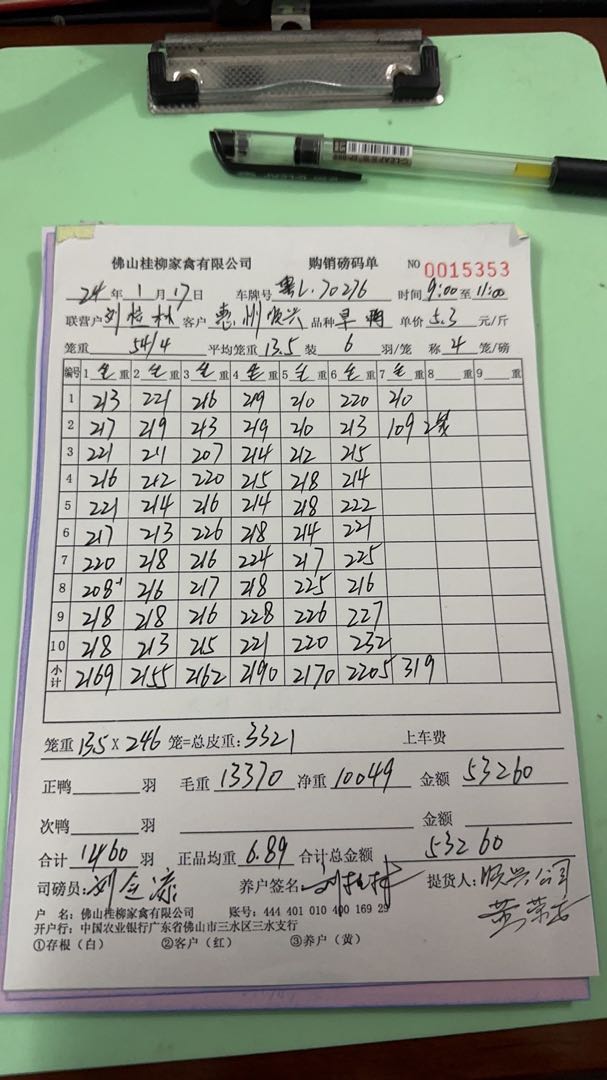 佛山桂柳家禽有限公司 购销磅码单 NO 0015353
24年1月17日 车牌号 粤L·70276 时间 9:00至11:00
联营户 刘桂林 客户 惠州顺兴 品种 旱鸭 单价 5.3 元/斤
笼重 54/4 平均笼重 13.5 装 6 羽/笼 称 4 笼/磅
编号 1 毛重 2 毛重 3 毛重 4 毛重 5 毛重 6 毛重 7 毛重 8 重 9 重
1 213 221 216 219 210 220 210
2 217 219 213 219 210 213 109 2笼
3 221 211 207 214 212 215
4 216 212 220 215 218 214
5 221 214 216 214 218 222
6 217 213 226 218 214 221
7 220 218 216 224 217 225
8 208-1 216 217 218 225 216
9 218 218 216 228 226 227
10 218 213 215 221 220 232
小计 2169 2155 2162 2190 2170 2205 319
笼重 13.5 X 246 笼=总皮重: 3321 上车费
正鸭 羽 毛重 13370 净重 10049 金额 53260
次鸭 羽 金额
合计 1460 羽 正品均重 6.89 合计总金额 53260
司磅员: 刘 养户签名 刘桂林 提货人: 顺兴公司
黄荣
户 名: 佛山桂柳家禽有限公司 账号: 444 401 010 400 169 29
开户行: 中国农业银行广东省佛山市三水区三水支行
①存根(白) ②客户(红) ③养户(黄)